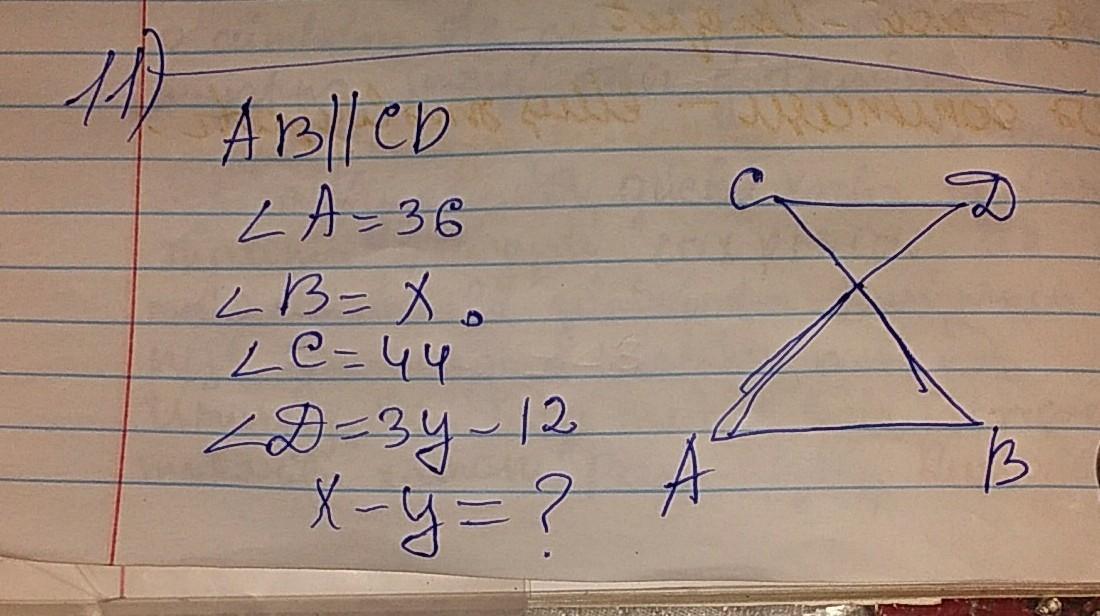 11)
AB||CD
∠A=36
∠B=x.
∠C=44
∠D=3y-12
x-y=?
C D
A B